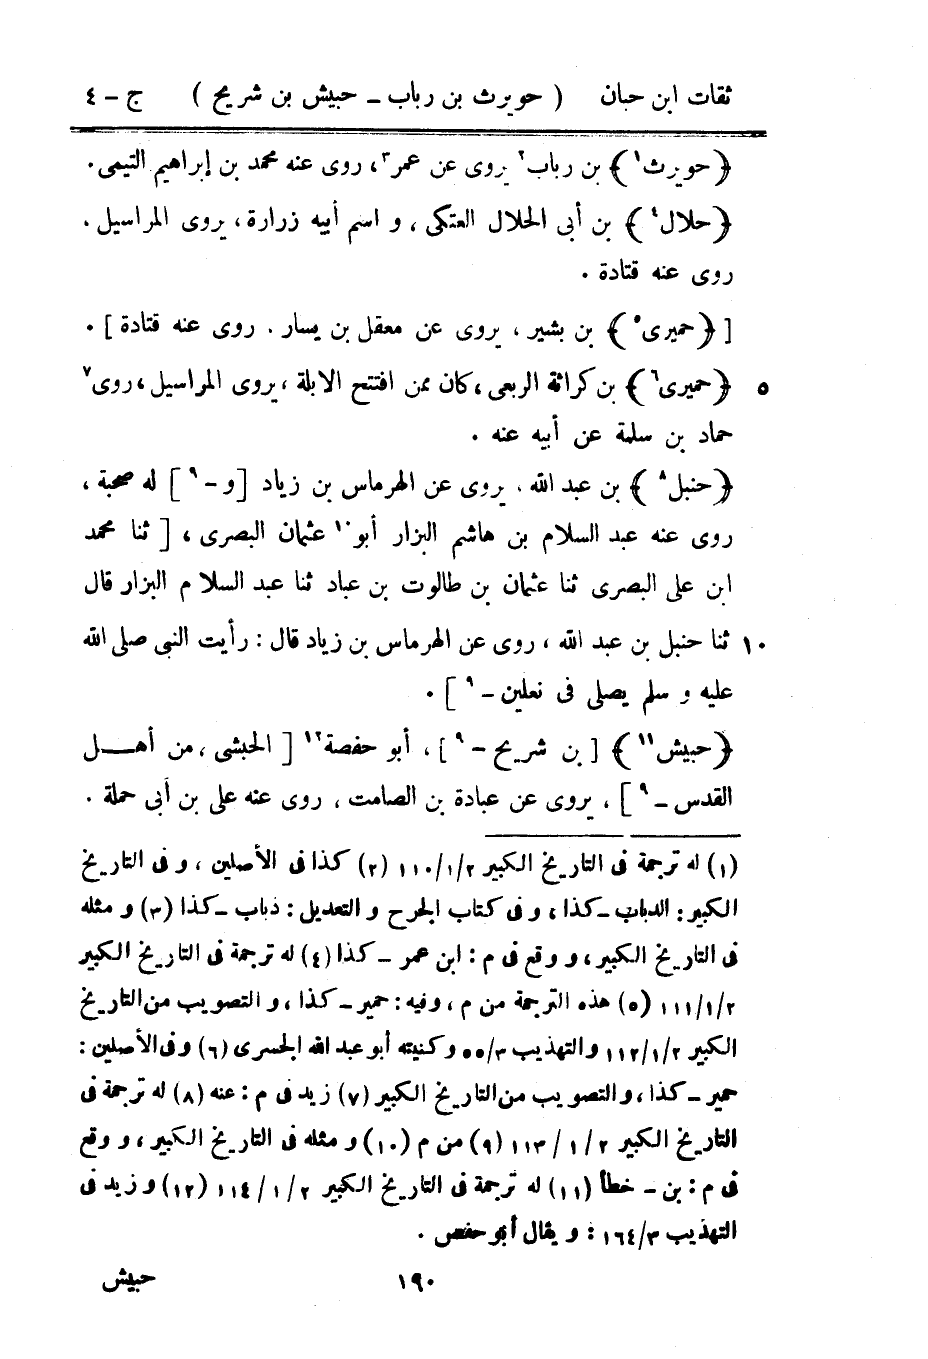 ثقات ابن حبان ( حويرث بن رباب ــ حبيش بن شريح ) ج – ٤
﴿حويرث١﴾ بن رباب٢ يروى عن عمر٣، روى عنه محمد بن إبراهيم التيمى.
﴿حلال٤﴾ بن أبى الحلال العتكى ، و اسم أبيه زرارة، يروى المراسيل .
روى عنه قتادة .
[ ﴿حميرى٥﴾ بن بشير ، يروى عن معقل بن يسار . روى عنه قتادة ] .
٥ ﴿حميرى٦﴾ بن كراثة الربعى ، كان ممن افتتح الابلة ، يروى المراسيل ، روى٧
حماد بن سلمة عن أبيه عنه .
﴿حنبل٨﴾ بن عبد الله . يروى عن الهرماس بن زياد [و – ٩] له صحبة ،
روى عنه عبد السلام بن هاشم البزار أبو١٠ عثمان البصرى ، [ ثنا محمد
ابن على البصرى ثنا عثمان بن طالوت بن عباد ثنا عبد السلام البزار قال
١٠ ثنا حنبل بن عبد الله ، روى عن الهرماس بن زياد قال : رأيت النبى صلى الله
عليه و سلم يصلى فى نعلين – ٩ ] .
﴿حبيش١١﴾ [ بن شريح – ٩ ] ، أبو حفصة١٢ [ الحبشى ، من أهـــل
القدس – ٩ ] ، يروى عن عبادة بن الصامت ، روى عنه على بن أبى حملة .
(١) له ترجمة فى التاريخ الكبير ٢/١/١١٠ (٢) كذا فى الأصلين ، و فى التاريخ
الكبير : الدباب ــ كذا ، و فى كتاب الجرح و التعديل : ذباب ــ كذا (٣) و مثله
فى التاريخ الكبير ، و وقع فى م : ابن عمر ــ كذا (٤) له ترجمة فى التاريخ الكبير
٢/١/١١١ (٥) هذه الترجمة من م ، وفيه : حمير ــ كذا ، و التصويب من التاريخ
الكبير ٢/١/١١٢ والتهذيب ٣/٥٥ وكنيته أبو عبد الله الجسرى (٦) وفى الأصلين :
حمير ــ كذا ، والتصويب من التاريخ الكبير (٧) زيد فى م : عنه (٨) له ترجمة فى
التاريخ الكبير ٢ / ١ / ١١٣ (٩) من م (١٠) و مثله فى التاريخ الكبير ، و وقع
فى م : بن ــ خطأ (١١) له ترجمة فى التاريخ الكبير ٢ / ١ / ١١٤ (١٢) وزيد فى
التهذيب ٣/١٦٤ : و يقال أبو حفص .
١٩٠ حبيش